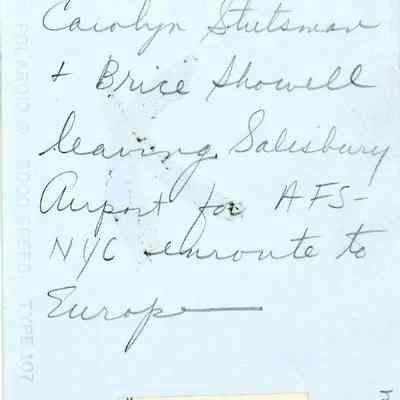 Carolyn Stutsman
+ Brice Showell
leaving Salisbury
Airport for AFS-
NYC enroute to
Europe
POLAROID ® 3000 SPEED TYPE 107